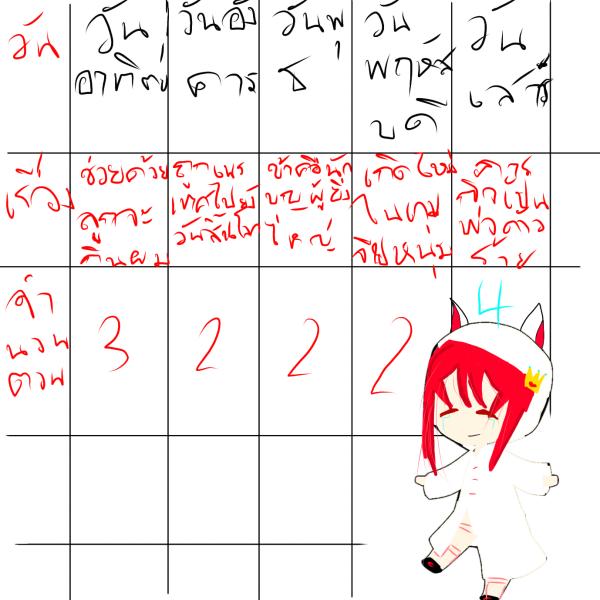 วัน
วัน
อาทิตย์
วันอัง
คาร
วันพุ
ธ
วัน
พฤหัส
บดี
วัน
เสาร์
เรื่อง
ช่วยด้วย
ลูกจะ
กินผม
ถูก
ไปยัง
วันสิ้นโลก
ข้าคือนัก
บุญผู้ยิ่ง
ใหญ่
เกิดใหม่
ในเกม
จีบหนุ่ม
การ
เป็น
พ่อดาว
ร้าย
จำ
นวน
ตอน
3
2
2
2
4